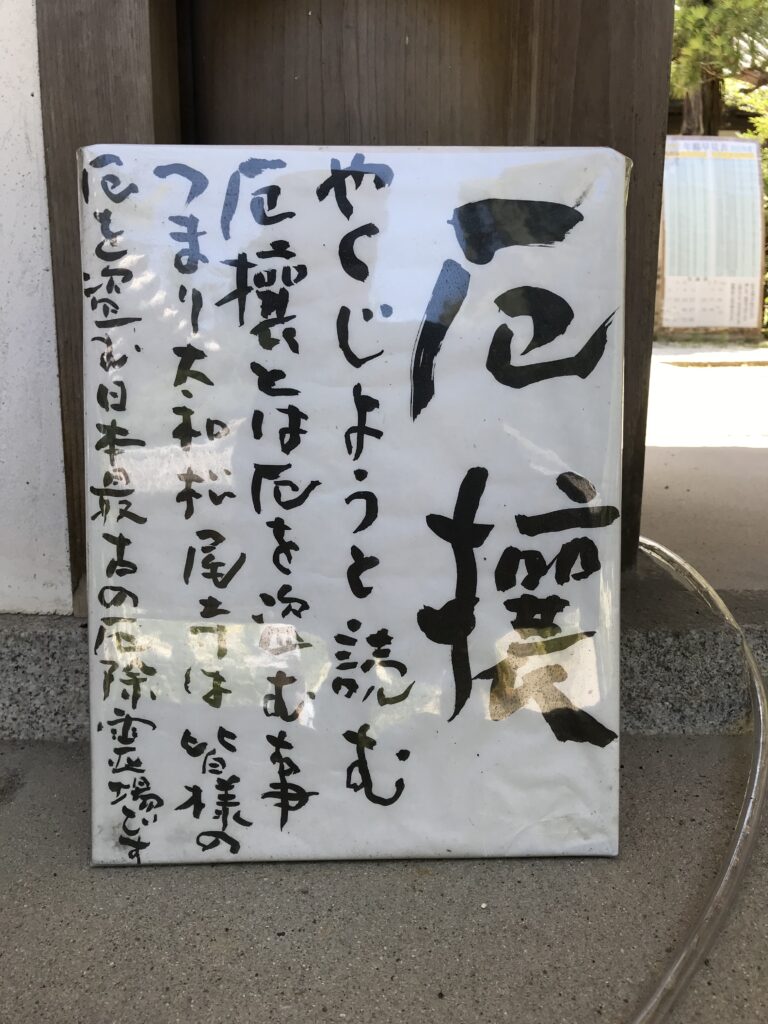 厄攘
やくじようと読む
厄攘とは厄を盗む事
つまり大和松尾寺は皆様の
厄を盗む日本最古の厄除霊場です